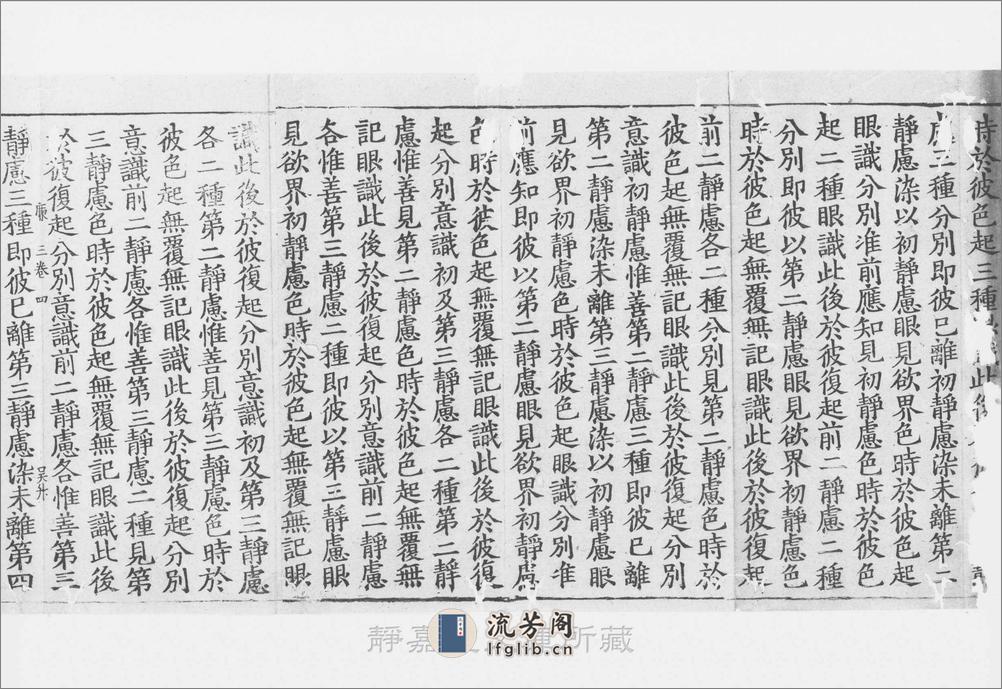 時於彼色起三種此後
慮三種分別即彼已離初靜慮染未離第二
靜慮染以初靜慮眼見欲界色時於彼色起
眼識分別准前應知見初靜慮色時於彼色
起二種眼識此後於彼復起前二靜慮二種
分別即彼以第二靜慮眼見欲界初靜慮色
時於彼色起無覆無記眼識此後於彼復起
前二靜慮各二種分別見第二靜慮色時於
彼色起無覆無記眼識此後於彼復起分別
意識初靜慮惟善第二靜慮三種即彼已離
第二靜慮染未離第三靜慮染以初靜慮眼
見欲界初靜慮色時於彼色起眼識分別准
前應知即彼以第二靜慮眼見欲界初靜慮
色時於彼色起無覆無記眼識此後於彼復
起分別意識初及第三靜慮各二種第二靜
慮惟善見第二靜慮色時於彼色起無覆無
記眼識此後於彼復起分別意識前二靜慮
各惟善第三靜慮二種即彼以第三靜慮眼
見欲界初靜慮色時於彼色起無覆無記眼
識此後於彼復起分別意識初及第三靜慮
各二種第二靜慮惟善見第三靜慮色時於
彼色起無覆無記眼識此後於彼復起分別
意識前二靜慮各惟善第三靜慮二種見第
三靜慮色時於彼色起無覆無記眼識此後
於彼復起分別意識前二靜慮各惟善第三
三卷 四 吴升
靜慮三種即彼已離第三靜慮染未離第四
靜嘉 所藏
流芳阁
lfglib.cn